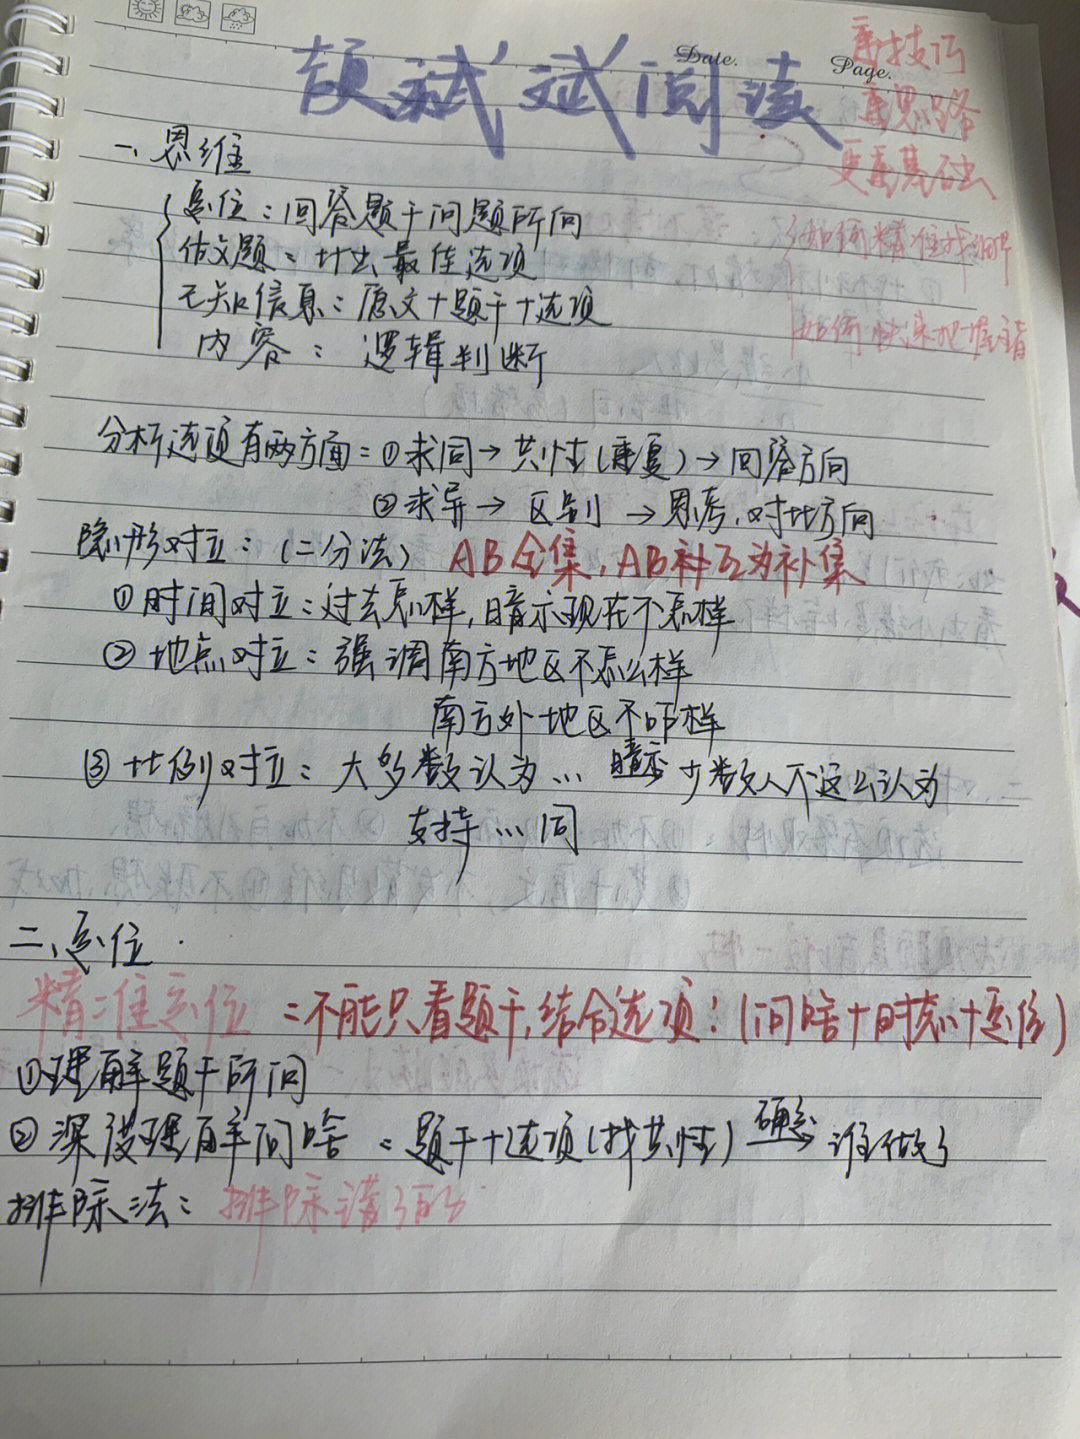 Date.
Page.
颉斌斌阅读
重技巧
重思路
更重基础
如何精准找细节
如何快速把握主旨
一、思维
定位：回答题干问题所问
做文题：叶出最佳选项
已知信息：原文+题干+选项
内容：逻辑判断
分析选项有两方面：①求同→共性(重复)→回答方向
②求异→区别→思考,对比方向
隐形对立：(二分法) AB全集,AB补互为补集
①时间对立：过去怎样,暗示现在不怎样
②地点对立：强调南方地区不怎么样
南方外地区不咋样
③比例对立：大多数认为… 暗示 少数人不这么认为
支持…同
二、定位
精准定位：不能只看题干,结合选项!(问啥+时态+定位)
①理解题干所问
②深度理解问啥：题干+选项(找共性) 确定 谁做了
排除法：排除谱了的